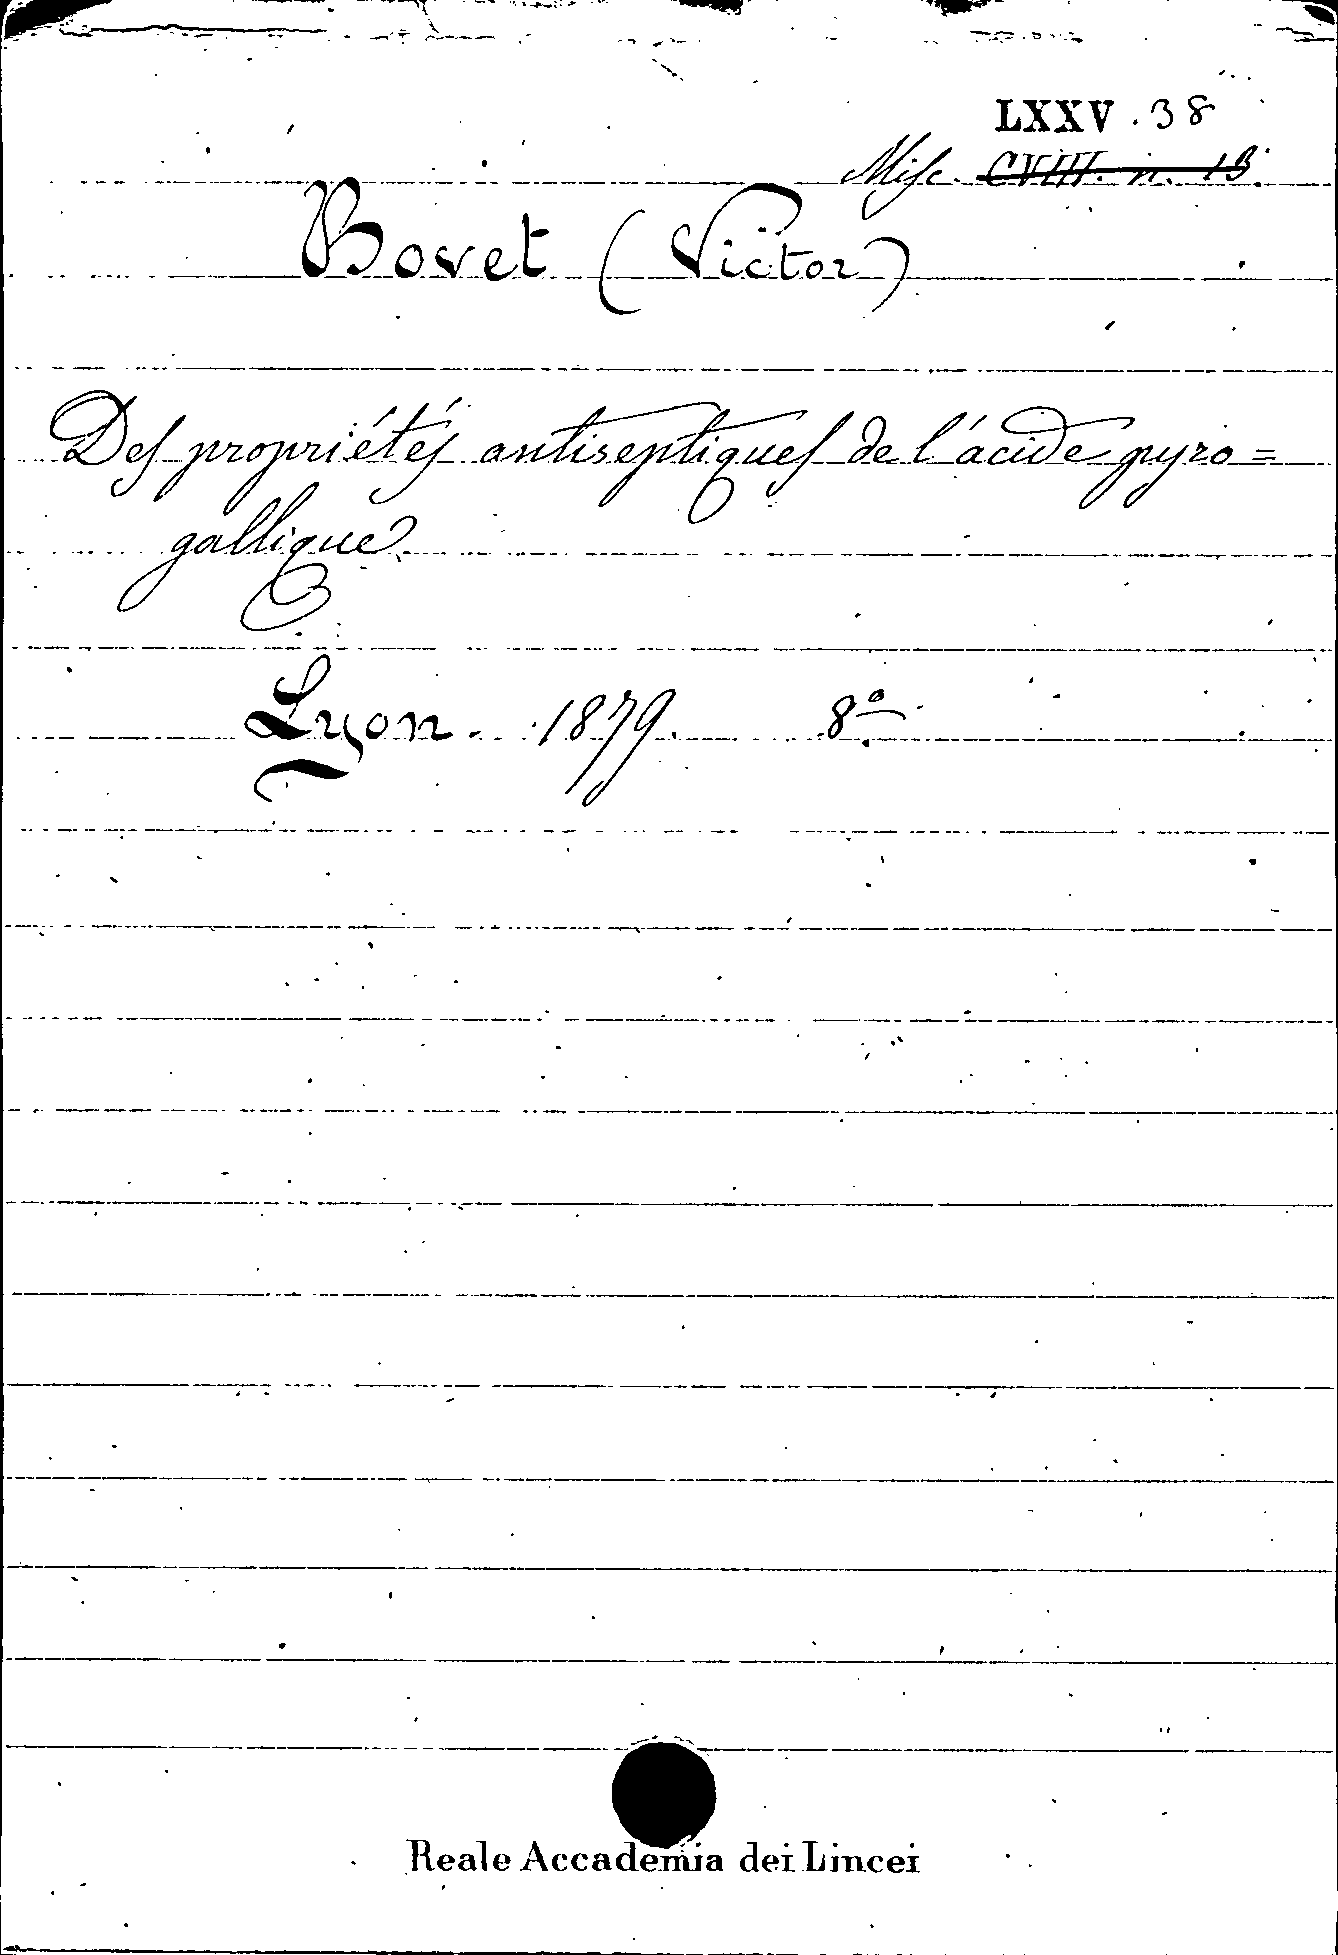 LXXV . 38
Misc. CVIII. n. 13.
Bovet (Victor)
Des propriétés antiseptiques de l'ácide pyro=
gallique
Lyon. 1879. 8º
Reale Accademia dei Lincei